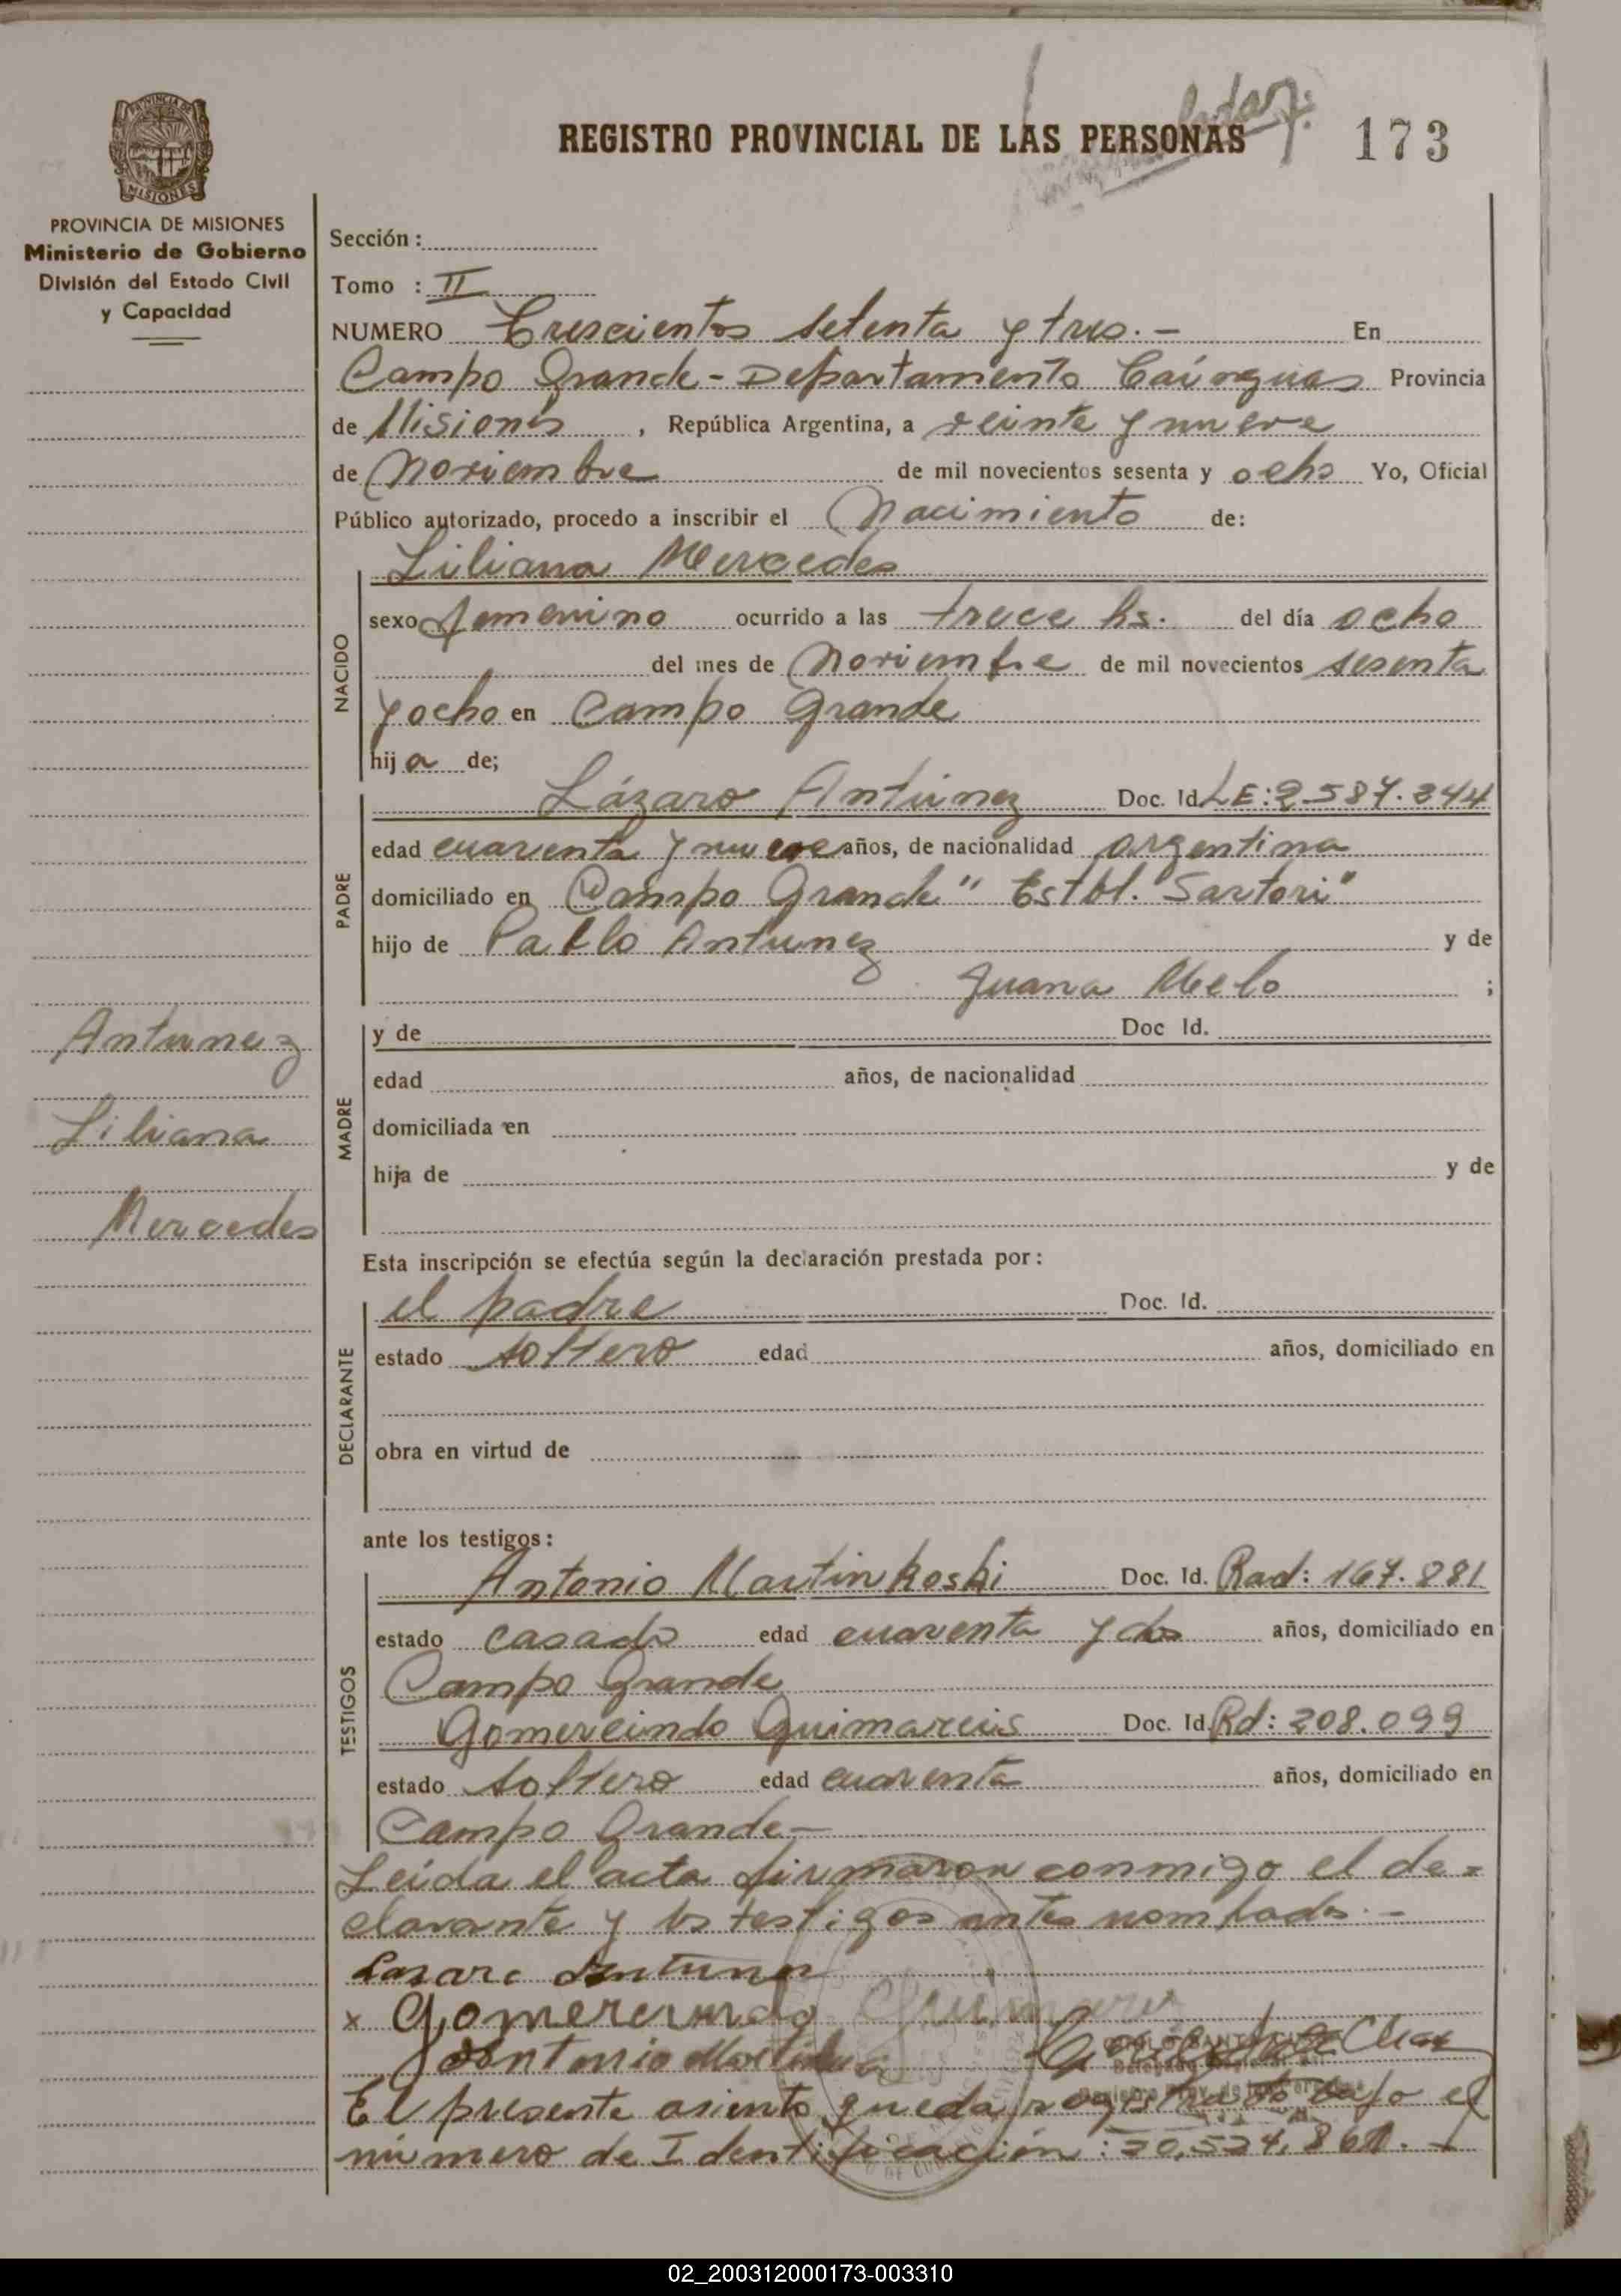 REGISTRO PROVINCIAL DE LAS PERSONAS
173
PROVINCIA DE MISIONES
MISIONES
PROVINCIA DE MISIONES
Ministerio de Gobierno
División del Estado Civil
y Capacidad
Sección :
Tomo : II
NUMERO Trescientos setenta y tres.- En
Campo Grande - Departamento Cainguas Provincia
de Misiones , República Argentina, a veinte y nueve
de Noviembre de mil novecientos sesenta y ocho Yo, Oficial
Público autorizado, procedo a inscribir el Nacimiento de:
NACIDO
Liliana Mercedes
sexo femenino ocurrido a las trece hs. del día ocho
del mes de Noviembre de mil novecientos sesenta
y ocho en Campo Grande
hij a de;
PADRE
Lázaro Antúnez Doc. Id. LE: 2587.244
edad cuarenta y nueve años, de nacionalidad argentina
domiciliado en Campo Grande" Estbl. "Sartori"
hijo de Pablo Antunez y de
Juana Melo ;
MADRE
y de Doc Id.
edad años, de nacionalidad
domiciliada en
hija de y de
Antunez
Liliana
Mercedes
Esta inscripción se efectúa según la declaración prestada por:
DECLARANTE
el padre Doc. Id.
estado soltero edad años, domiciliado en
obra en virtud de
ante los testigos:
TESTIGOS
Antonio Martinkoski Doc. Id. Rad: 167.881
estado casado edad cuarenta y dos años, domiciliado en
Campo Grande
Gomercindo Guimareis Doc. Id. Rd: 208.099
estado soltero edad cuarenta años, domiciliado en
Campo Grande-
Leida el acta firmaron conmigo el de=
clarante y los testigos antes nombrados.-
Lasaro Antunez
x Gomercindo
Antonio
El presente asiento queda registrado bajo el
número de Identificación: 20.524.861.-
02_200312000173-003310